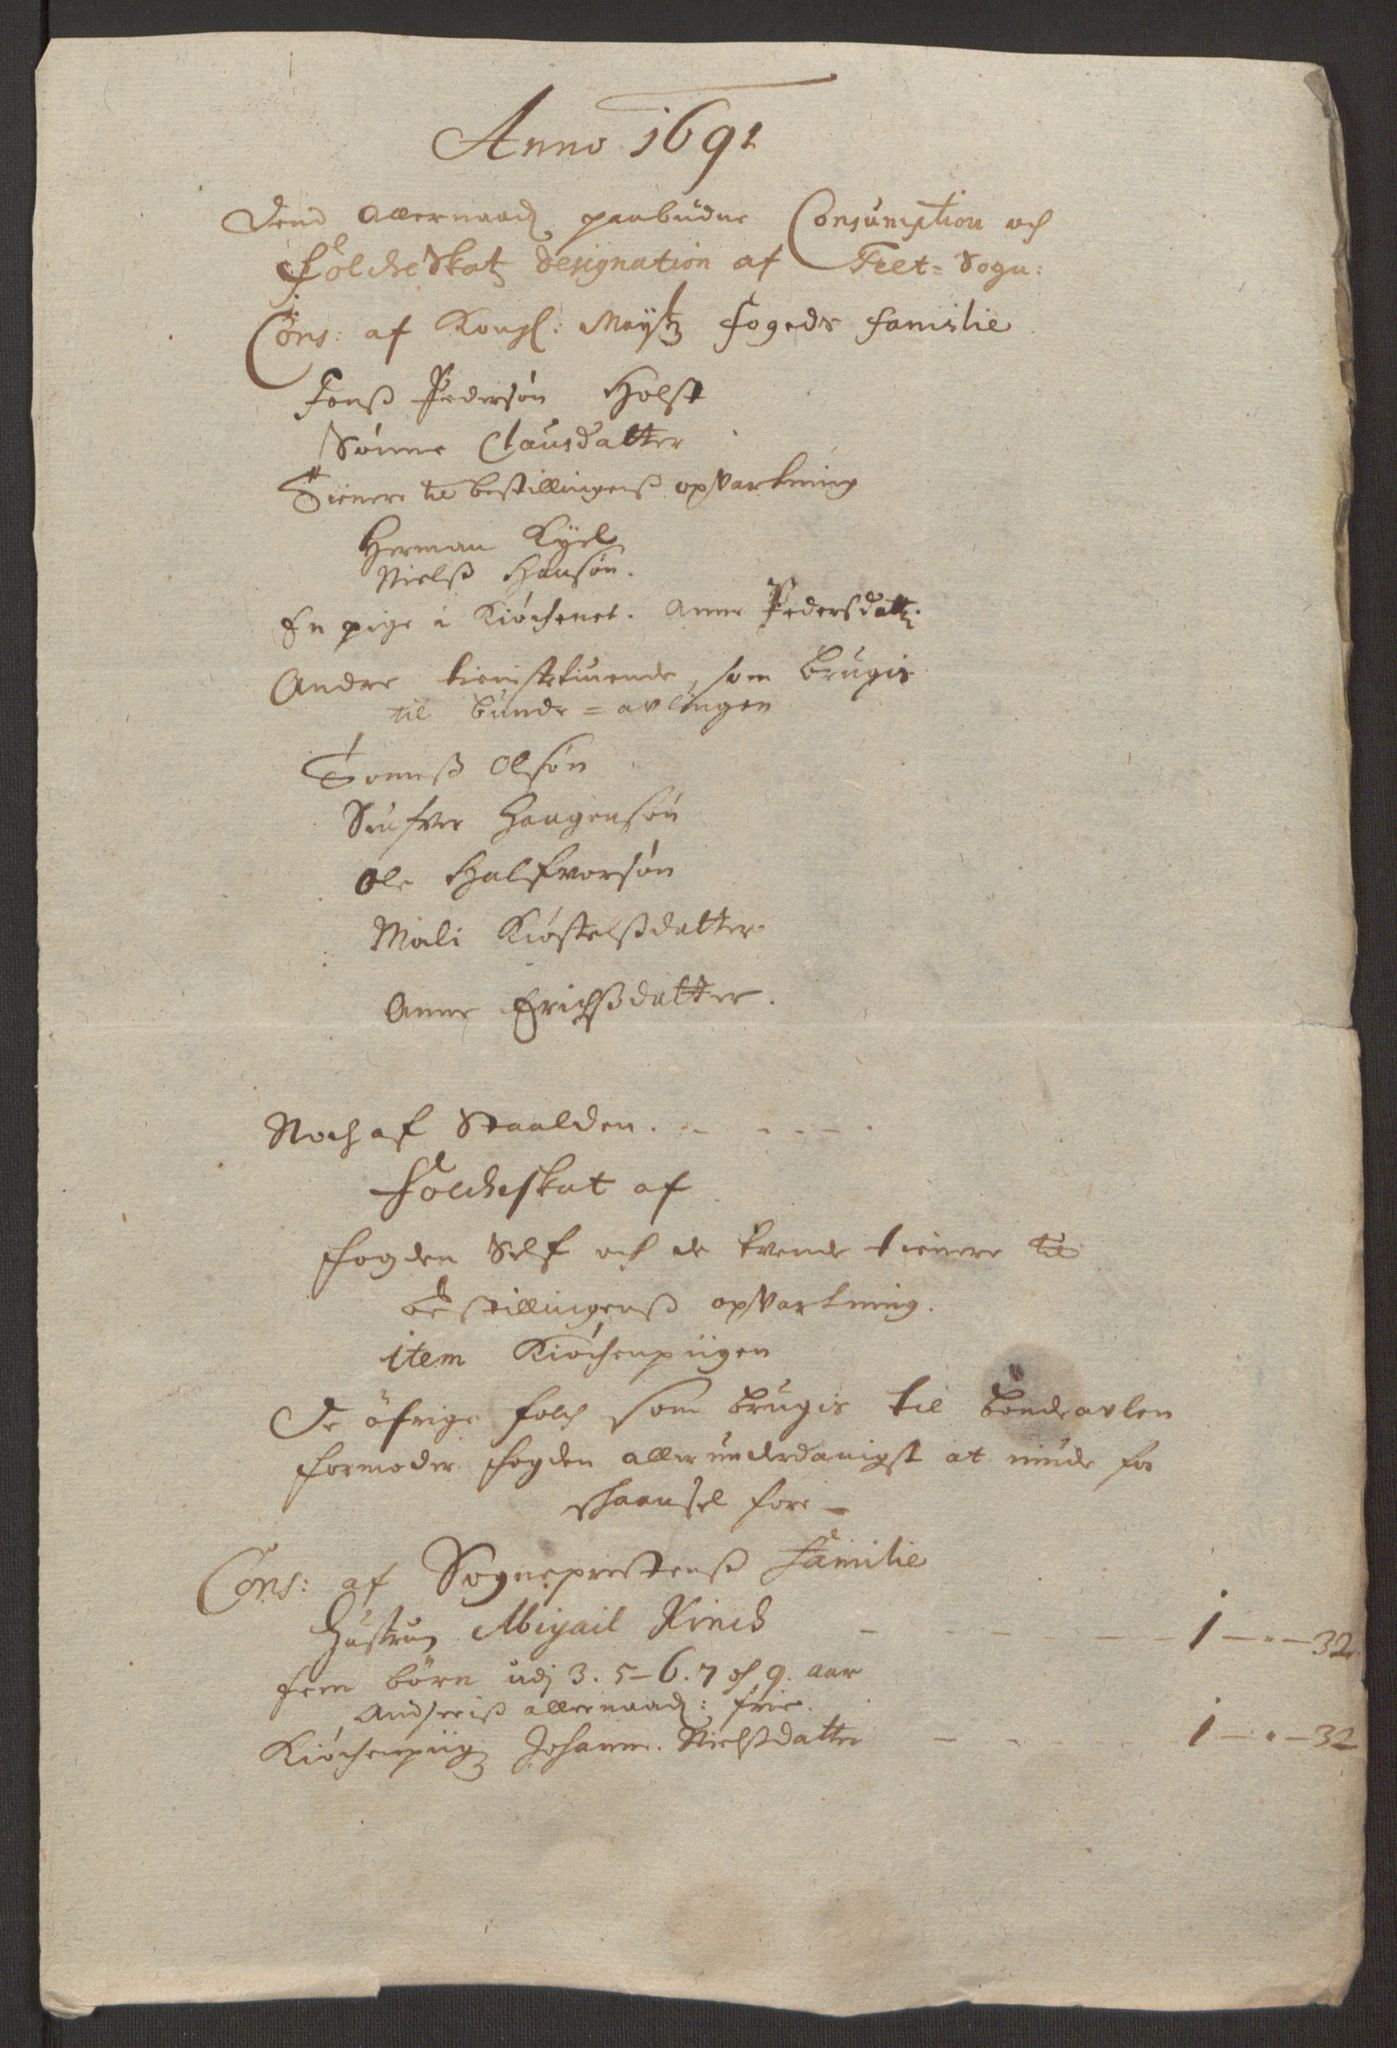 Anno 1691
Dend Allernaad: paabudne Consumption och
folcheskatz designation af Feet=Sogn:
Cons: af Kongl: Maytz fogeds familie
Jenß Pedersøn Holst
Sønne Clausdatter
Tienere til bestillingenß opvartning
Herman Kyel
Nielß Hansøn.
En pige i Kiøchenet. Anne Pedersdatt:
Andre tienistetiuende, som brugis
til bunde=avlingen
Tomeß Olsøn
Siufver Haagensøn
Ole Halfvorsøn
Mali Kiøstelßdatter
Anne Erichßdatter.
Noch af Staalden.
Folcheskat af
fogden Self och de tvende tienere til
bestillingenß opvartning.
item Kiøchenpiigen
De öfrige folch som brugis til bondeavlen
formoder fogden allerunderdanigst at niude for
skaansel fore
Cons: af Sogneprestenß Familie
Hustru Abigail Kinck 1 - " - 32
fem børn udj 3. 5 - 6. 7 og 9. aar
Andseeiß allernaad: frie.
Kiøchenpiig Johanne Nielsdatter 1 - " - 32